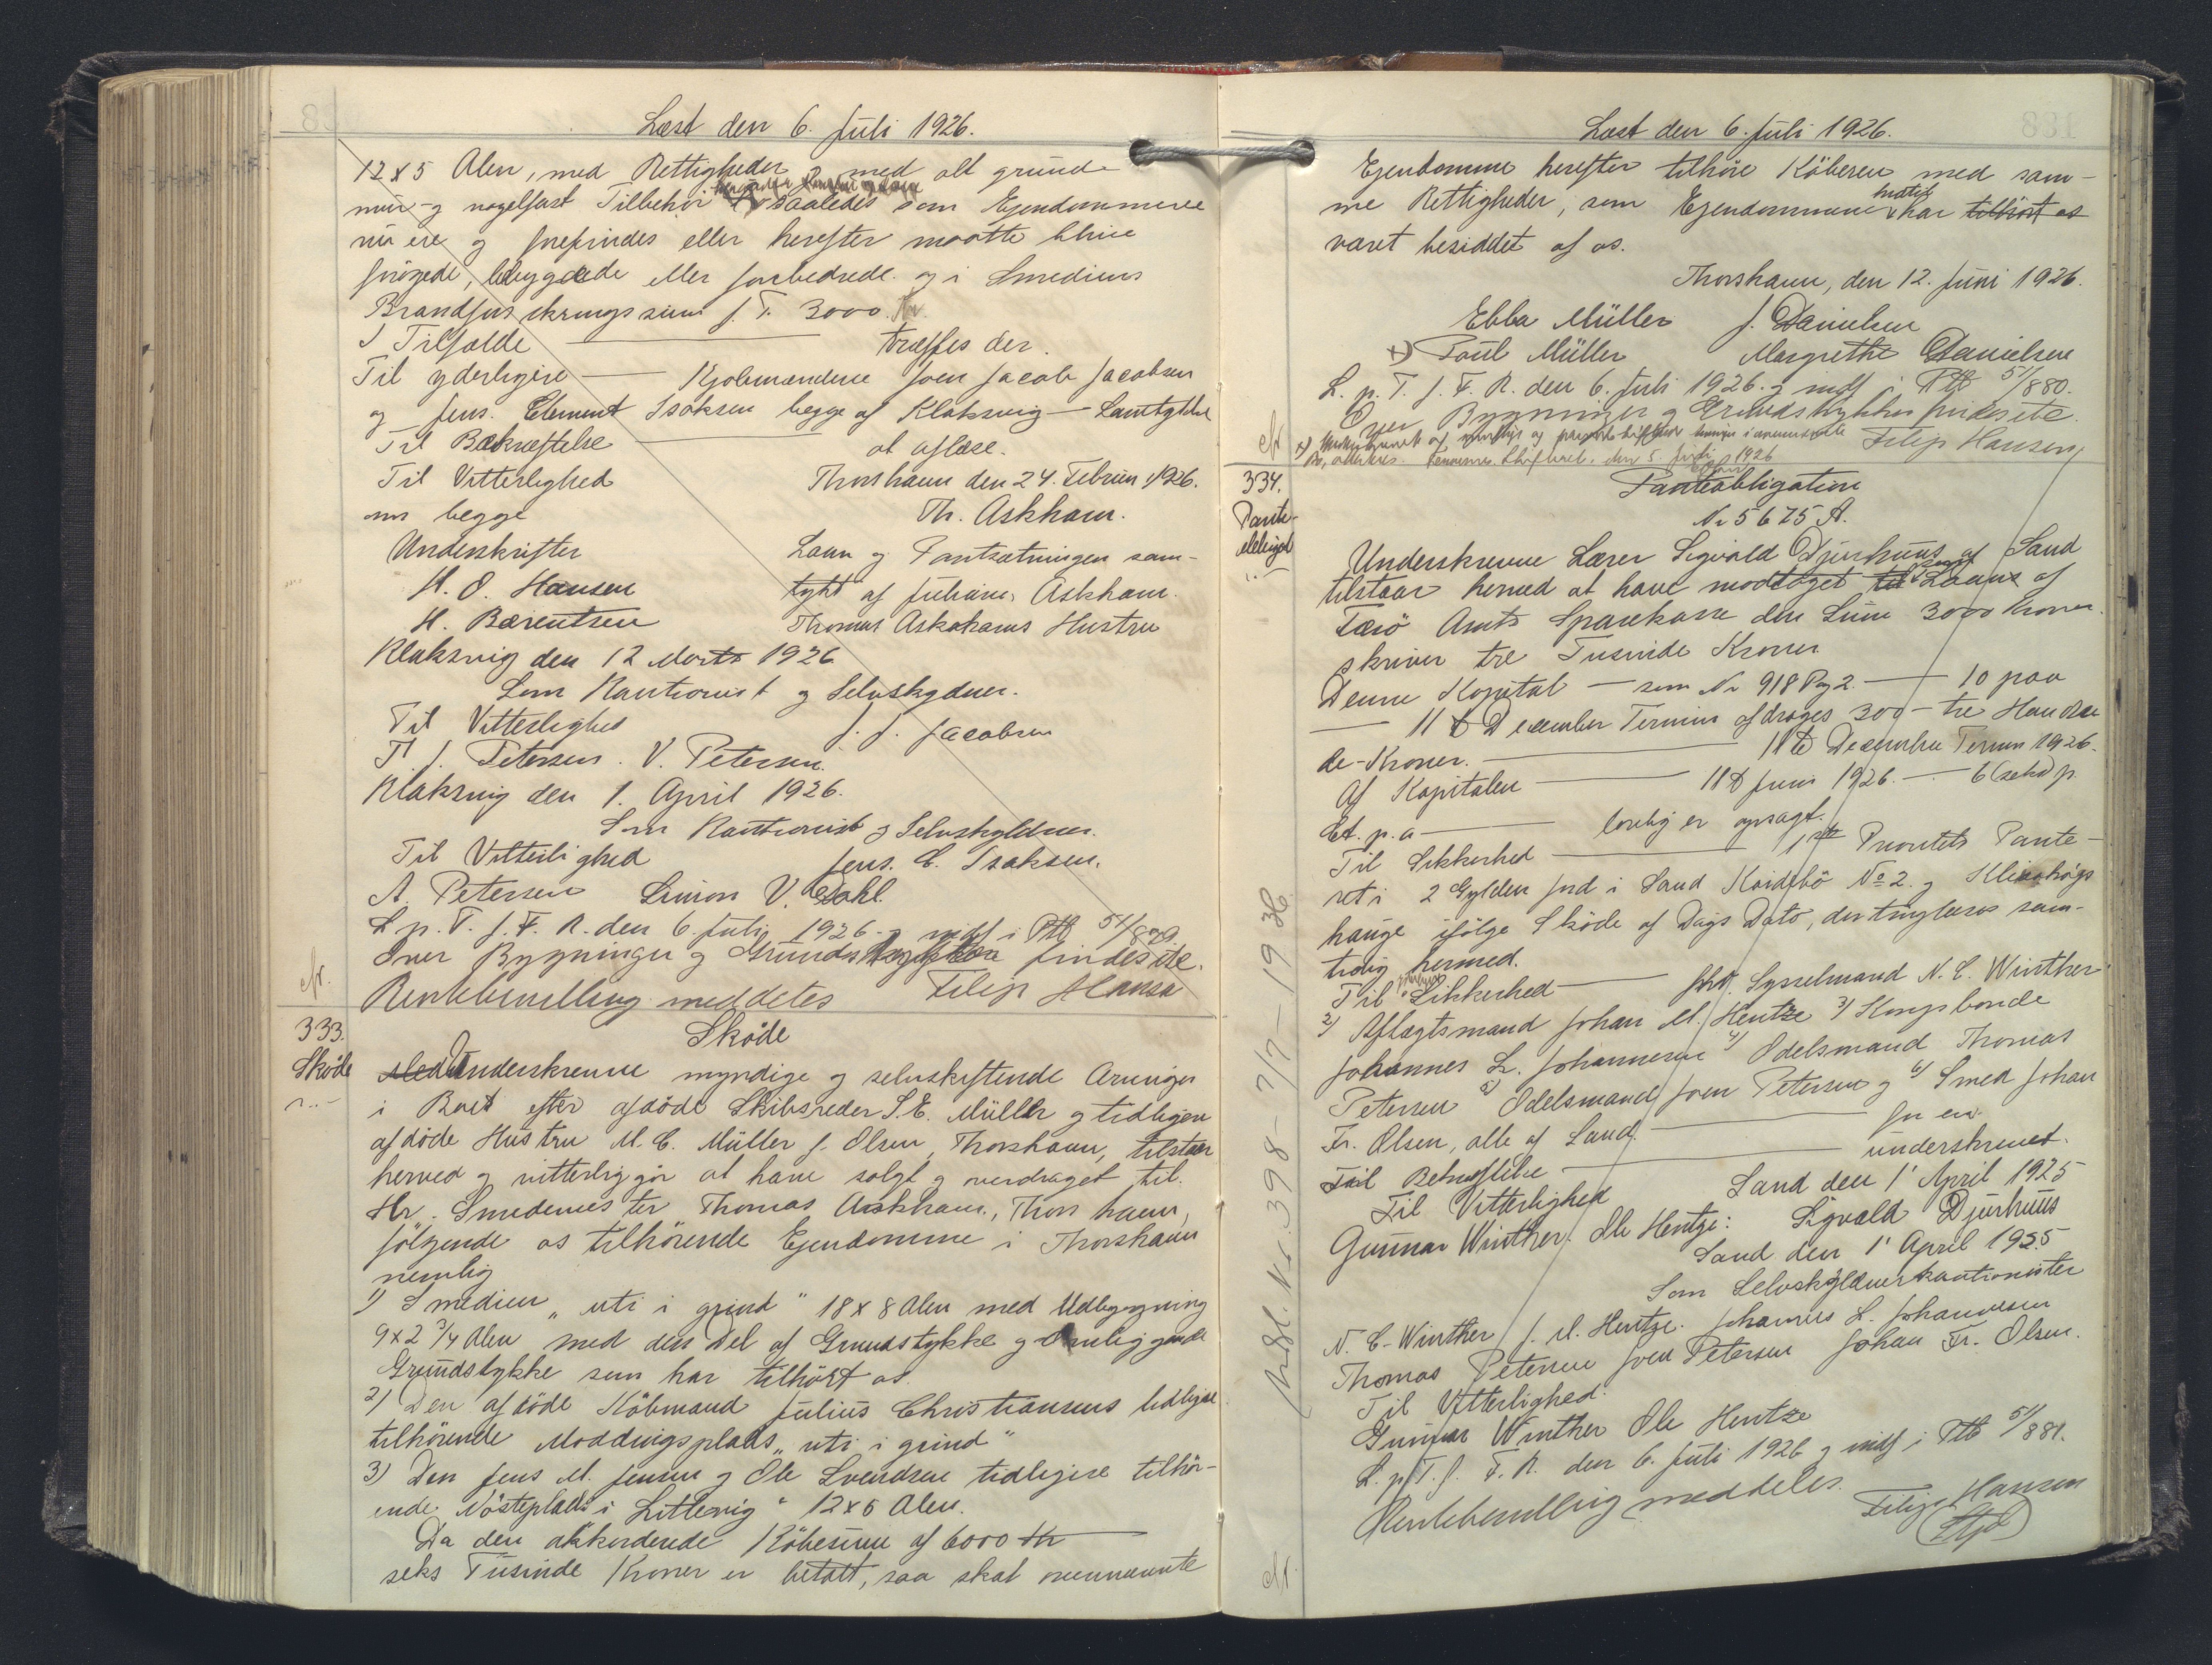 Læst den 6. Juli 1926.
12 x 5 Alen, med Rettigheder, med alt grund-
mur- og nagelfast Tilbehør saaledes som Ejendommene
nu ere og forefindes eller herefter maatte blive
forøgede, bebyggede eller forbedrede og i Smediens
Brandforsikringssum f. T. 3000 Kr.
I Tilfælde — træffes der.
Til yderligere — Kjøbmændene Joen Jacob Jacobsen
og Jens. Clement Isaksen begge af Klaksvig — Samtykke
Til Bekræftelse — at aflæse.
Til Vitterlighed Thorshavn den 24. Februar 1926.
om begge Th. Askham.
Underskrifter Laan og Pantsætningen sam-
H. O. Hansen tykt af Juliane Askham.
H. Bærentsen Thomas Askahams Hustru
Klaksvig den 12 Marts 1926
Som Kautionist og Selvskyldner.
Til Vitterlighed J. J. Jacobsen
F. J. Petersen. V. Petersen.
Klaksvig den 1. April 1926.
Som Kautionist og Selvskyldner.
Til Vitterlighed Jens. C. Isaksen.
A. Petersen Simon V. Dahl.
L. p. T. f. F. R. den 6. Juli 1926 og indf i Ptb 51/879.
Over Bygninger og Grundstykker findes ite.
Rentebevilling meddeles Filip Hansen
333.
Skøde
Skøde
Med Underskrevne myndige og selvskiftende Arvinger
i Boet efter afdøde Skibsreder S. E. Müller og tidligere
afdøde Hustru M. C. Müller f. Olsen, Thorshavn, tilstaar
herved og vitterliggør at have solgt og overdraget til
Hr. Smedemester Thomas Askham, Thorshavn,
følgende os tilhørende Ejendomme i Thorshavn
nemlig
1) Smedien „uti i grind" 18 x 8 Alen med Udbygning
9 x 2 3/4 Alen med den Del af Grundstykke og omliggende
Grundstykke som har tilhørt os.
2) Den afdøde Købmand Julius Christiansens tidligere
tilhørende Møddingsplads „uti i grind"
3) Den Jens M. Jensen og Ole Svendsen tidligere tilhør-
ende Nøsteplads i Littlevig" 12 x 6 Alen.
Da den akkorderede Købesum af 6000 Kr —
seks Tusinde Kroner er betalt, saa skal ovennævnte
Læst den 6. Juli 1926.
Ejendomme herefter tilhøre Køberen med sam-
me Rettigheder, som Ejendommene hidtil har tilhørt os
været besiddet af os.
Thorshavn, den 12. Juni 1926.
Ebba Müller J. Danielsen
x) Poul Müller Margrethe Danielsen
L. p. T. f. F. R. den 6. Juli 1926 og indf i Ptb 51/880.
Over Bygninger og Grundstykker findes ite.
Filip Hansen
334.
Pante-
obligation
Nr 5675 A.
Underskrevne Lærer Sigvald Djurhuus af Sand
tilstaar herved at have modtaget til Laans af
Færø Amts Sparekasse den Sum 3000 Kroner
skriver tre Tusinde Kroner
Denne Kapital — som Nr 918 Pag 2. — 10 paa
— 11 D December Termin afdrages 300 — tre Hundre-
de - Kroner. — 11 D December Termin 1926.
Af Kapitalen — 11 D Juni 1926. — 6 (seks) p.
Ct. p. a — lovlig er opsagt.
Til Sikkerhed — 1ste Prioritets Pante-
ret i 2 Gylden Jord i Sand Heidjbø No 2. og
hauge ifølge Skøde af Dags Dato, der tinglæses sam-
tidig hermed.
Til Sikkerhed — fhv. Sysselmand N. C. Winther
2) Aflægtsmand Johan M. Hentze 3) Kongsbonde
Johannes L. Johannesen 4) Odelsmand Thomas
Petersen 5) Odelsmand Joen Petersen og 6) Smed Johan
Fr. Olsen, alle af Sand. — for en
Til Bekræftelse — underskrevet.
Til Vitterlighed Sand den 1' April 1925
Gunnar Winther. Ole Hentze: Sigvald Djurhuus
Sand den 1' April 1925
Som Selvskyldnerkautionister
N. C. Winther J. M. Hentze. Johannes L. Johannesen
Thomas Petersen Joen Petersen Johan Fr. Olsen.
Til Vitterlighed:
Gunnar Winther Ole Hentze
L. p. T. f. F. R. den 6. Juli 1926 og indf i Ptb 51/881.
Rentebevilling meddeles. Filip Hansen
Udsl. Nr. 398 - 7/7 - 1936